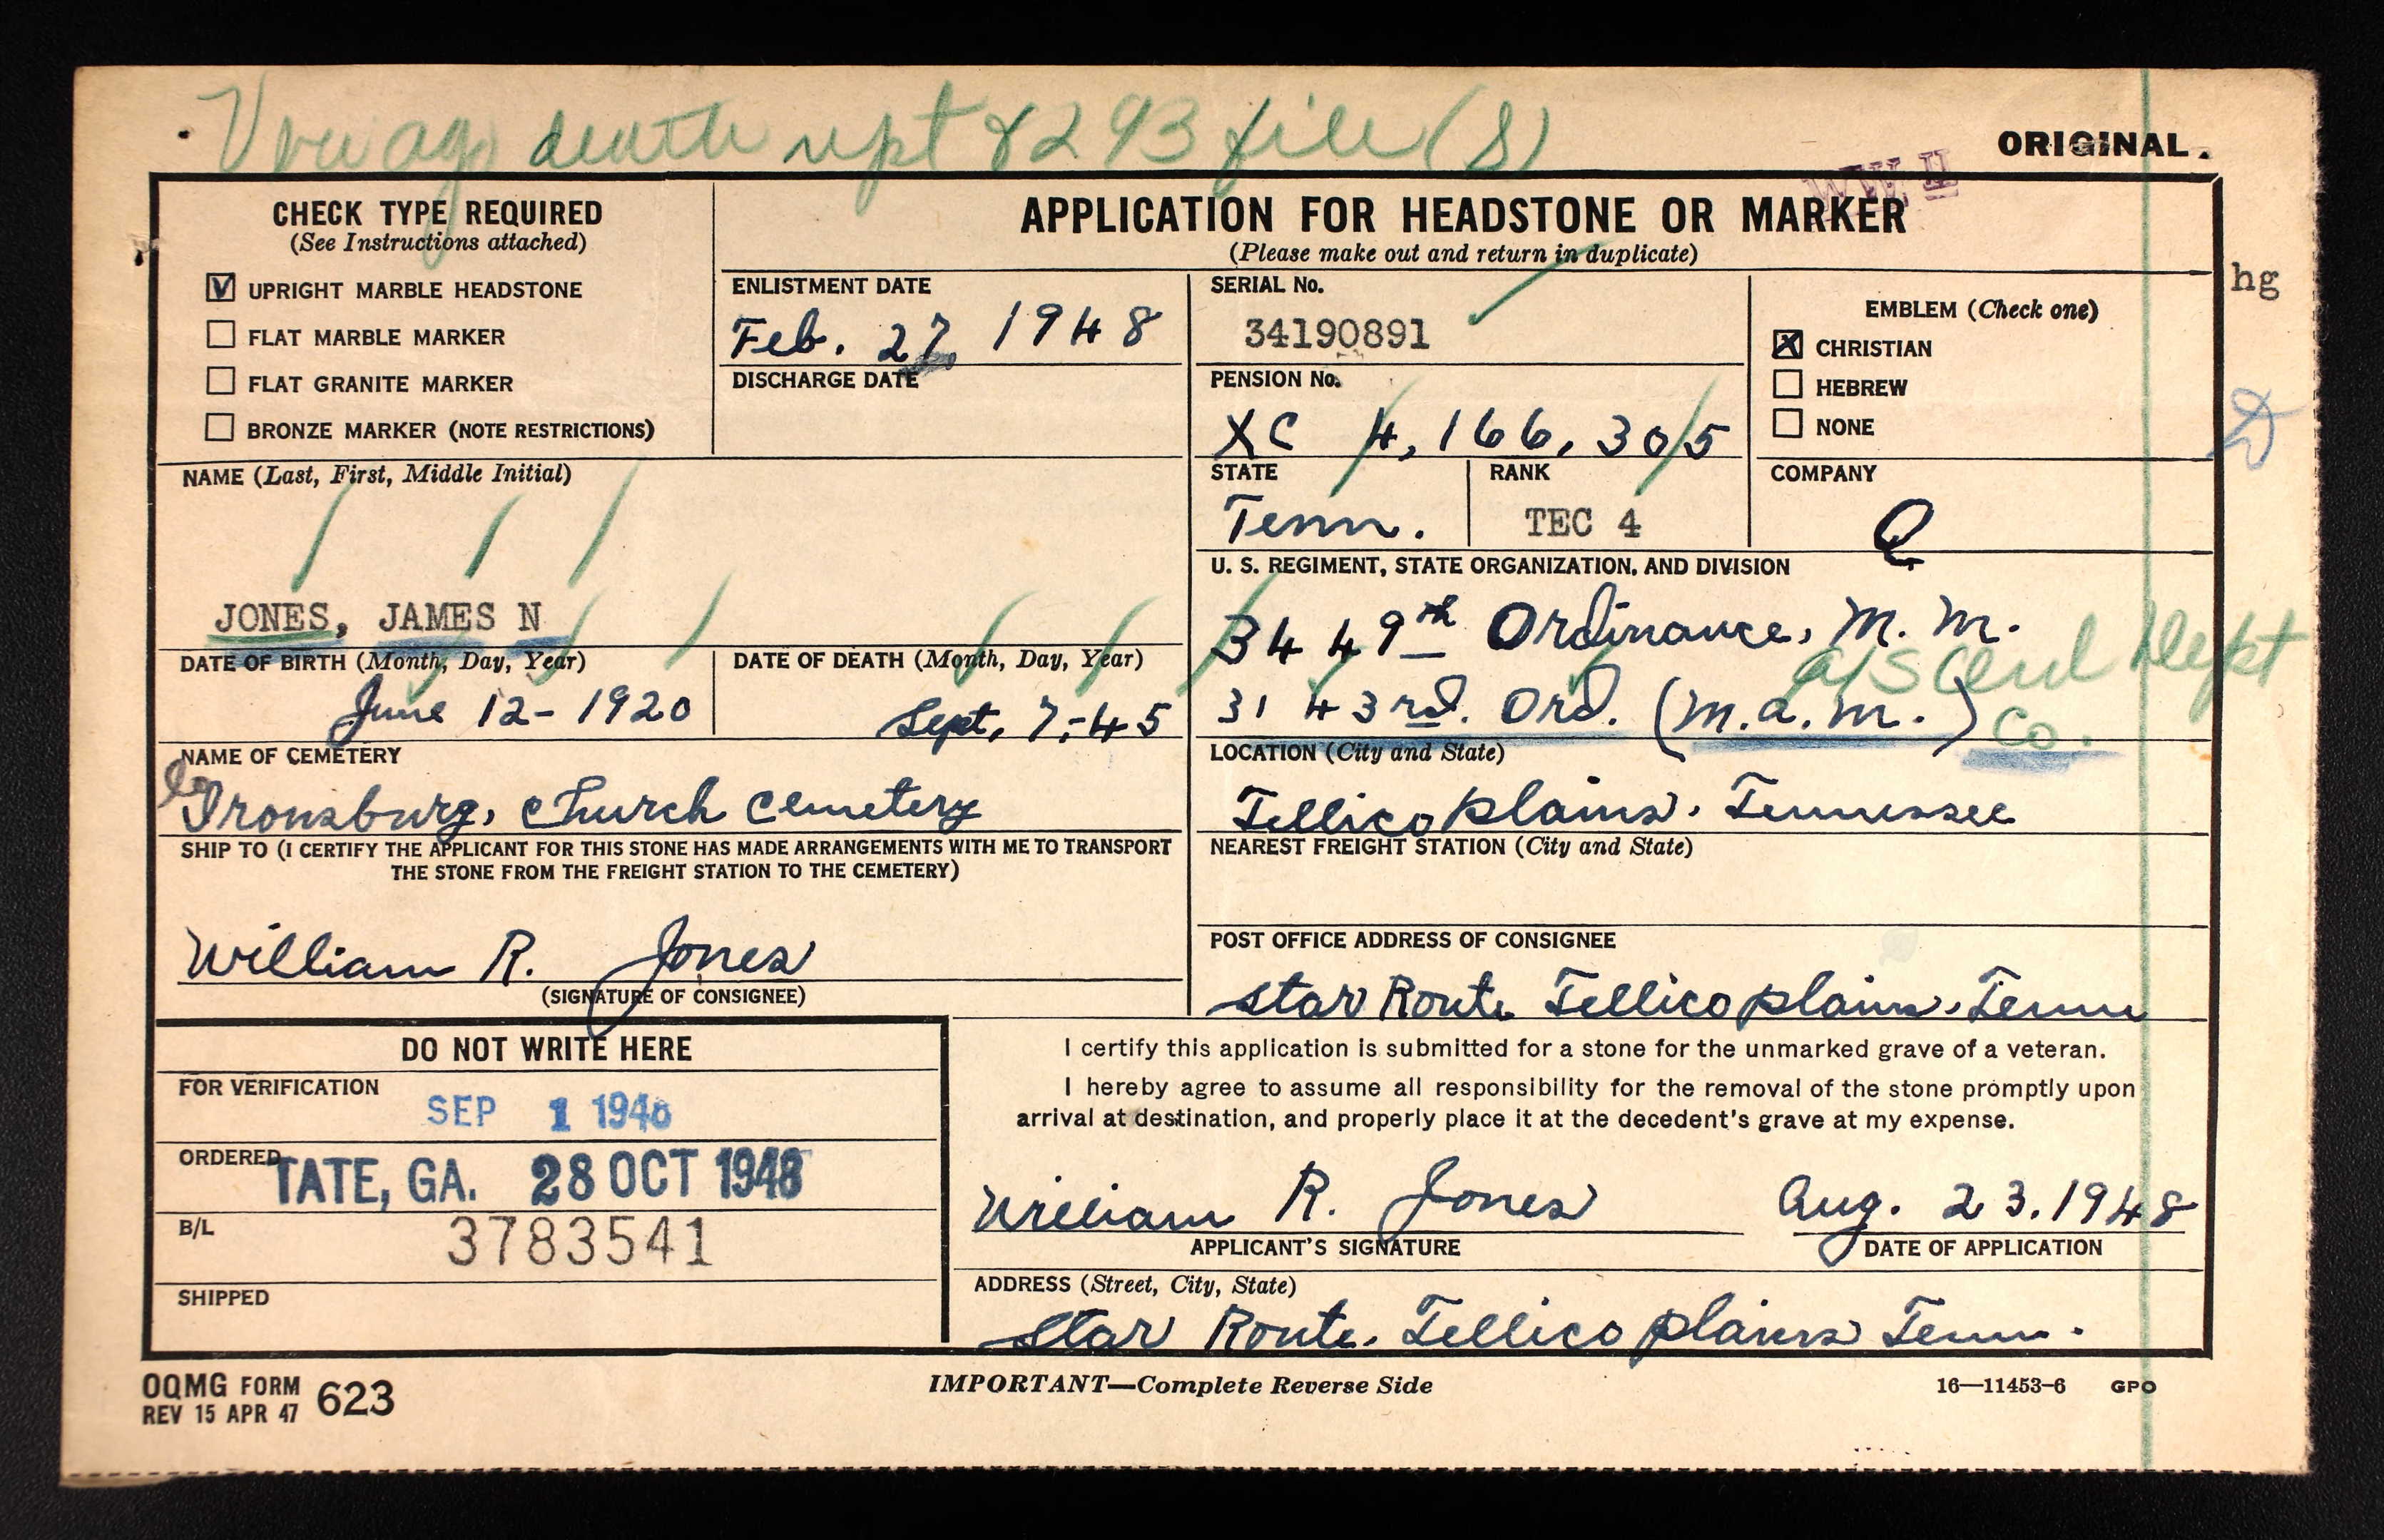 death rpt 8293 file (S)
ORIGINAL.
WW II
CHECK TYPE REQUIRED
(See Instructions attached)
V UPRIGHT MARBLE HEADSTONE
FLAT MARBLE MARKER
FLAT GRANITE MARKER
BRONZE MARKER (NOTE RESTRICTIONS)
APPLICATION FOR HEADSTONE OR MARKER
(Please make out and return in duplicate)
hg
ENLISTMENT DATE
Feb. 27, 1948
DISCHARGE DATE
SERIAL No.
34190891
PENSION No.
XC 4,166,305
EMBLEM (Check one)
X CHRISTIAN
HEBREW
NONE
NAME (Last, First, Middle Initial)
JONES, JAMES N
STATE
Tenn.
RANK
TEC 4
COMPANY
Q
U. S. REGIMENT, STATE ORGANIZATION, AND DIVISION
3449th Ordinance, M. M.
a/s Cend Dept
3143rd. Ord. (M.a.m.) Co.
DATE OF BIRTH (Month, Day, Year)
June 12-1920
DATE OF DEATH (Month, Day, Year)
Sept, 7-45
NAME OF CEMETERY
Ironsburg, church cemetery
LOCATION (City and State)
Tellico plains. Tennessee
SHIP TO (I CERTIFY THE APPLICANT FOR THIS STONE HAS MADE ARRANGEMENTS WITH ME TO TRANSPORT
THE STONE FROM THE FREIGHT STATION TO THE CEMETERY)
William R. Jones
(SIGNATURE OF CONSIGNEE)
NEAREST FREIGHT STATION (City and State)
POST OFFICE ADDRESS OF CONSIGNEE
Star Route Tellico plains. Tenn
DO NOT WRITE HERE
FOR VERIFICATION
SEP 1 1948
ORDERED
TATE, GA. 28 OCT 1948
B/L
3783541
SHIPPED
I certify this application is submitted for a stone for the unmarked grave of a veteran.
I hereby agree to assume all responsibility for the removal of the stone promptly upon
arrival at destination, and properly place it at the decedent's grave at my expense.
William R. Jones
Aug. 23. 1948
APPLICANT'S SIGNATURE
DATE OF APPLICATION
ADDRESS (Street, City, State)
Star Route. Tellico plains Tenn.
OQMG FORM 623
REV 15 APR 47
IMPORTANT—Complete Reverse Side
16—11453-6 GPO